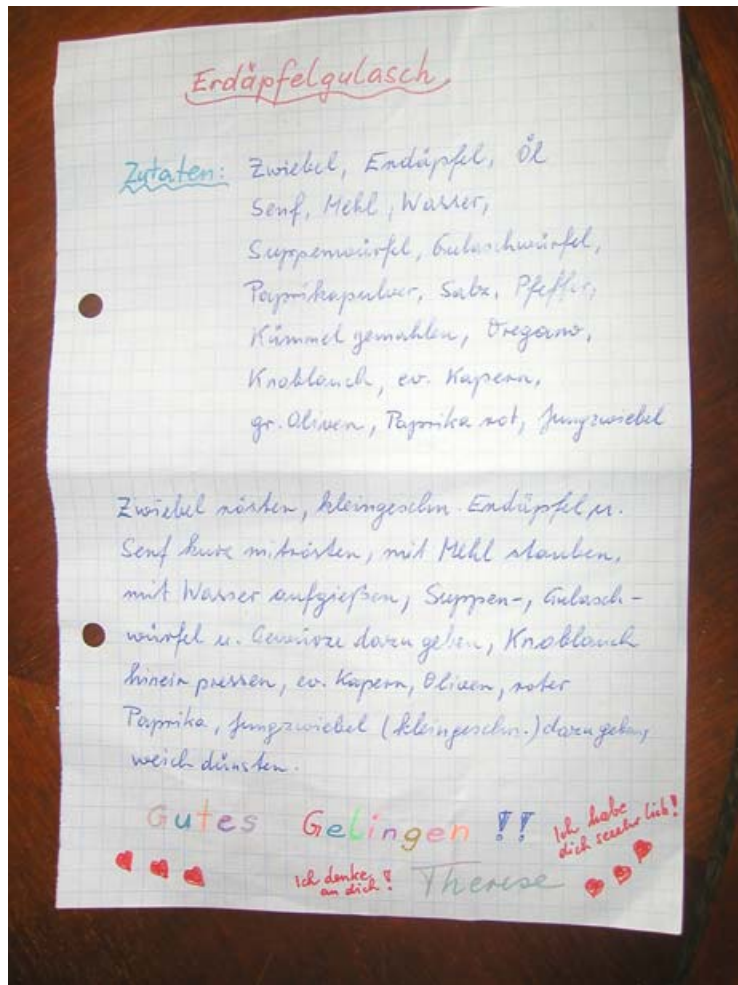 Erdäpfelgulasch
Zutaten: Zwiebel, Erdäpfel, Öl
Senf, Mehl, Wasser,
Suppenwürfel, Gulaschwürfel,
Paprikapulver, Salz, Pfeffer,
Kümmel gemahlen, Oregano,
Knoblauch, ev. Kapern,
gr. Oliven, Paprika rot, Jungzwiebel
Zwiebel rösten, kleingeschn. Erdäpfel u.
Senf kurz mitrösten, mit Mehl stauben,
mit Wasser aufgießen, Suppen-, Gulasch-
würfel u. Gewürze dazu geben, Knoblauch
hinein pressen, ev. Kapern, Oliven, roter
Paprika, Jungzwiebel (kleingeschn.) dazu geben,
weich dünsten.
Gutes Gelingen !!
Ich habe
dich seeehr lieb!
Ich denke
an dich!
Therese